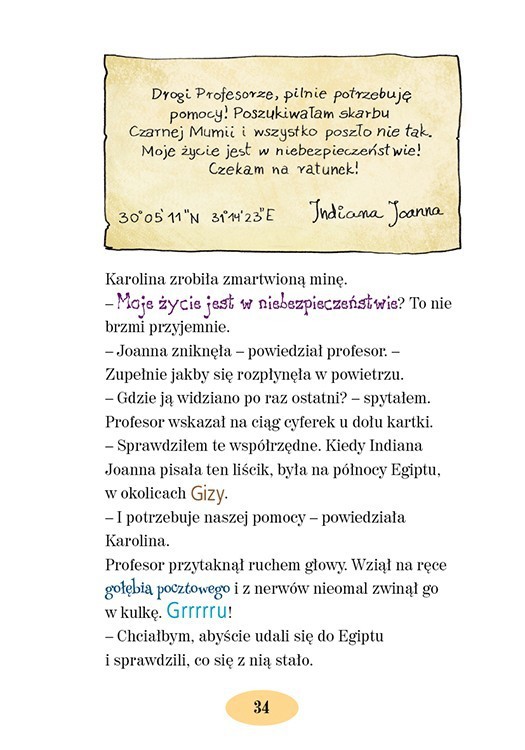 Drogi Profesorze, pilnie potrzebuję
pomocy! Poszukiwałam skarbu
Czarnej Mumii i wszystko poszło nie tak.
Moje życie jest w niebezpieczeństwie!
Czekam na ratunek!
30°05'11"N 31°14'23"E Indiana Joanna
Karolina zrobiła zmartwioną minę.
– Moje życie jest w niebezpieczeństwie? To nie
brzmi przyjemnie.
– Joanna zniknęła – powiedział profesor. –
Zupełnie jakby się rozpłynęła w powietrzu.
– Gdzie ją widziano po raz ostatni? – spytałem.
Profesor wskazał na ciąg cyferek u dołu kartki.
– Sprawdziłem te współrzędne. Kiedy Indiana
Joanna pisała ten liścik, była na północy Egiptu,
w okolicach Gizy.
– I potrzebuje naszej pomocy – powiedziała
Karolina.
Profesor przytaknął ruchem głowy. Wziął na ręce
gołębia pocztowego i z nerwów nieomal zwinął go
w kulkę. Grrrrru!
– Chciałbym, abyście udali się do Egiptu
i sprawdzili, co się z nią stało.
34